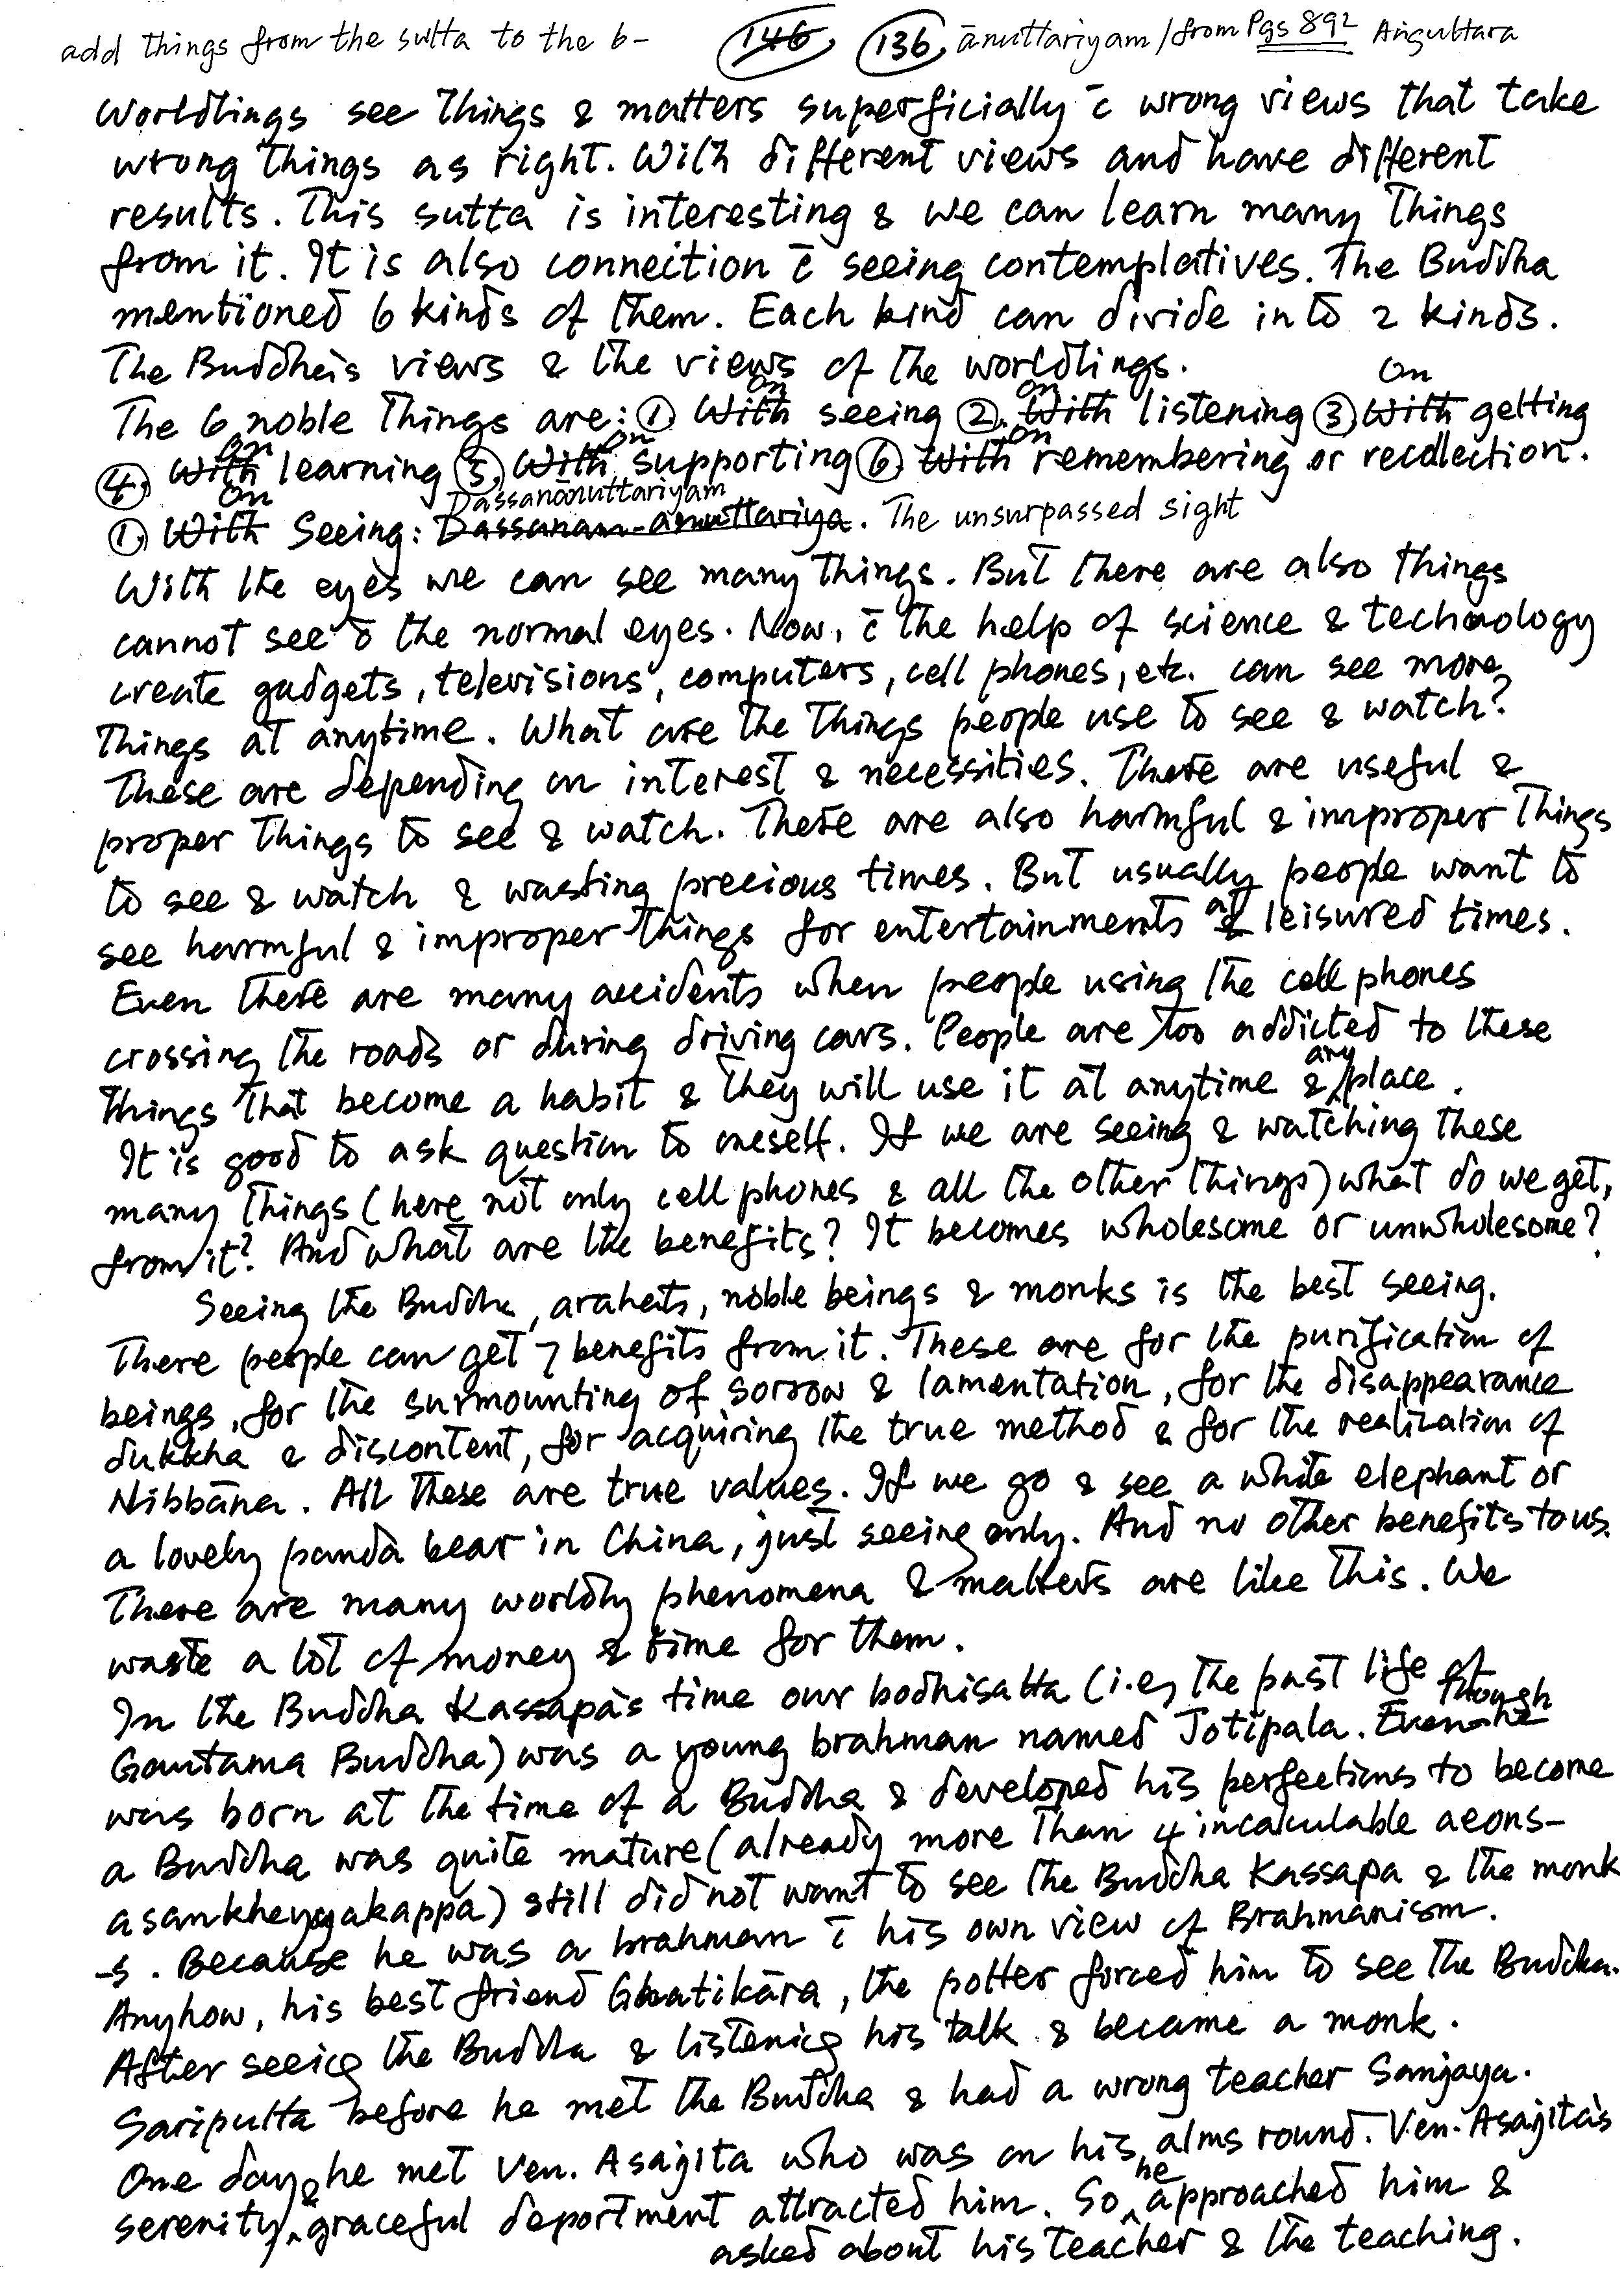 add things from the sutta to the 6- 146 136 ānuttariyam/from Pgs 892 Aṅguttara
Worldlings see things & matters superficially c̄ wrong views that take
wrong things as right. With different views and have different
results. This sutta is interesting & we can learn many things
from it. It is also connection c̄ seeing contemplatives. The Buddha
mentioned 6 kinds of them. Each kind can divide into 2 kinds.
The Buddha's views & the views of the worldlings.
The 6 noble things are: ① With On seeing ②. With On listening ③ With On getting
④. With On learning ⑤. With On supporting ⑥. With On remembering or recollection.
①. With On Seeing: Dassanam-anuttariya Dassanānuttariyam. The unsurpassed sight
With the eyes we can see many things. But there are also things
cannot see c̄ the normal eyes. Now, c̄ the help of science & technology
create gadgets, televisions, computers, cell phones, etc. can see more
things at anytime. What are the things people use to see & watch?
These are depending on interest & necessities. There are useful &
proper things to see & watch. There are also harmful & improper things
to see & watch & wasting precious times. But usually people want to
see harmful & improper things for entertainments at leisured times.
Even there are many accidents when people using the cell phones
crossing the roads or during driving cars. People are too addicted to these
things that become a habit & they will use it at anytime & any place.
It is good to ask question to oneself. If we are seeing & watching these
many things (here not only cell phones & all the other things) what do we get,
from it? And what are the benefits? It becomes wholesome or unwholesome?
Seeing the Buddha, arahats, noble beings & monks is the best seeing.
There people can get 7 benefits from it. These are for the purification of
beings, for the surmounting of sorrow & lamentation, for the disappearance
dukkha & discontent, for acquiring the true method & for the realization of
Nibbāna. All these are true values. If we go & see a white elephant or
a lovely panda bear in China, just seeing only. And no other benefits to us.
There are many worldly phenomena & matters are like this. We
waste a lot of money & time for them.
In the Buddha Kassapa's time our bodhisatta (i.e, the past life of
Gautama Buddha) was a young brahman named Jotipala. Even though he
was born at the time of a Buddha & developed his perfections to become
a Buddha was quite mature (already more than 4 incalculable aeons-
asankheyyakappa) still did not want to see the Buddha Kassapa & the monk
-s. Because he was a brahman c̄ his own view of Brahmanism.
Anyhow, his best friend Ghatikāra, the potter forced him to see the Buddha.
After seeing the Buddha & listening his talk & became a monk.
Sariputta before he met the Buddha & had a wrong teacher Sanjaya.
One day he met Ven. Asajita who was on his alms round. Ven. Asajita's
serenity & graceful deportment attracted him. So he approached him &
asked about his teacher & the teaching.